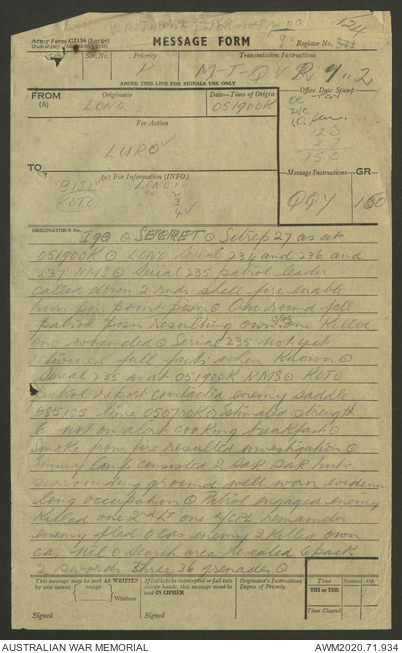 124
Army Form C2136 (Large)
MESSAGE FORM
9
Register No.
Ser. No.
Priority
Transmission Instructions
M-T-Q V R 4.2
ABOVE THIS LINE FOR SIGNALS USE ONLY
FROM
(A)
Originator
LONO
Date—Time of Origin
051900K
Office Date Stamp
For Action
LURO
123
27
150
TO
(W) For Information (INFO.)
BIJI LONO 1
KOTO 3
4
Message Instructions
GR
QQY
150
ORIGINATOR'S No.
I98 ⊙ SECRET ⊙ Sitrep 27 as at
051900K ⊙ LONO Serial 234 and 236 and
237 NMS ⊙ Serial 235 patrol leader
called down 2 rnds shell fire enable
him posn ⊙ One round fell
patrol posn resulting own one killed
one wounded ⊙ Serial 235 not yet
returned full facts when known ⊙
Serial 235 as at 051900K NMS ⊙ KOTO
patrol report contacted enemy saddle
685125 time 050710K ⊙ estimated strength
6 not on alert cooking breakfast ⊙
Smoke from fire resulted investigation ⊙
Enemy camp consisted 2 SAK SAK huts
surrounding ground well worn evidence
long occupation ⊙ Patrol engaged enemy
killed one 2nd LT one L/CPL remainder
enemy fled ⊙ Cas enemy 2 killed own
cas nil ⊙ Search area revealed 6 pack
2 swords three 36 grenades ⊙
This message may be sent AS WRITTEN
by any means
(except
)
Wireless
If liable to be intercepted or fall into
enemy hands, this message must be
sent IN CIPHER
Originator's Instructions
Degree of Priority
Time
System
Op
THI or TOR
Time Cleared
Signed
Signed
AUSTRALIAN WAR MEMORIAL
AWM2020.71.934